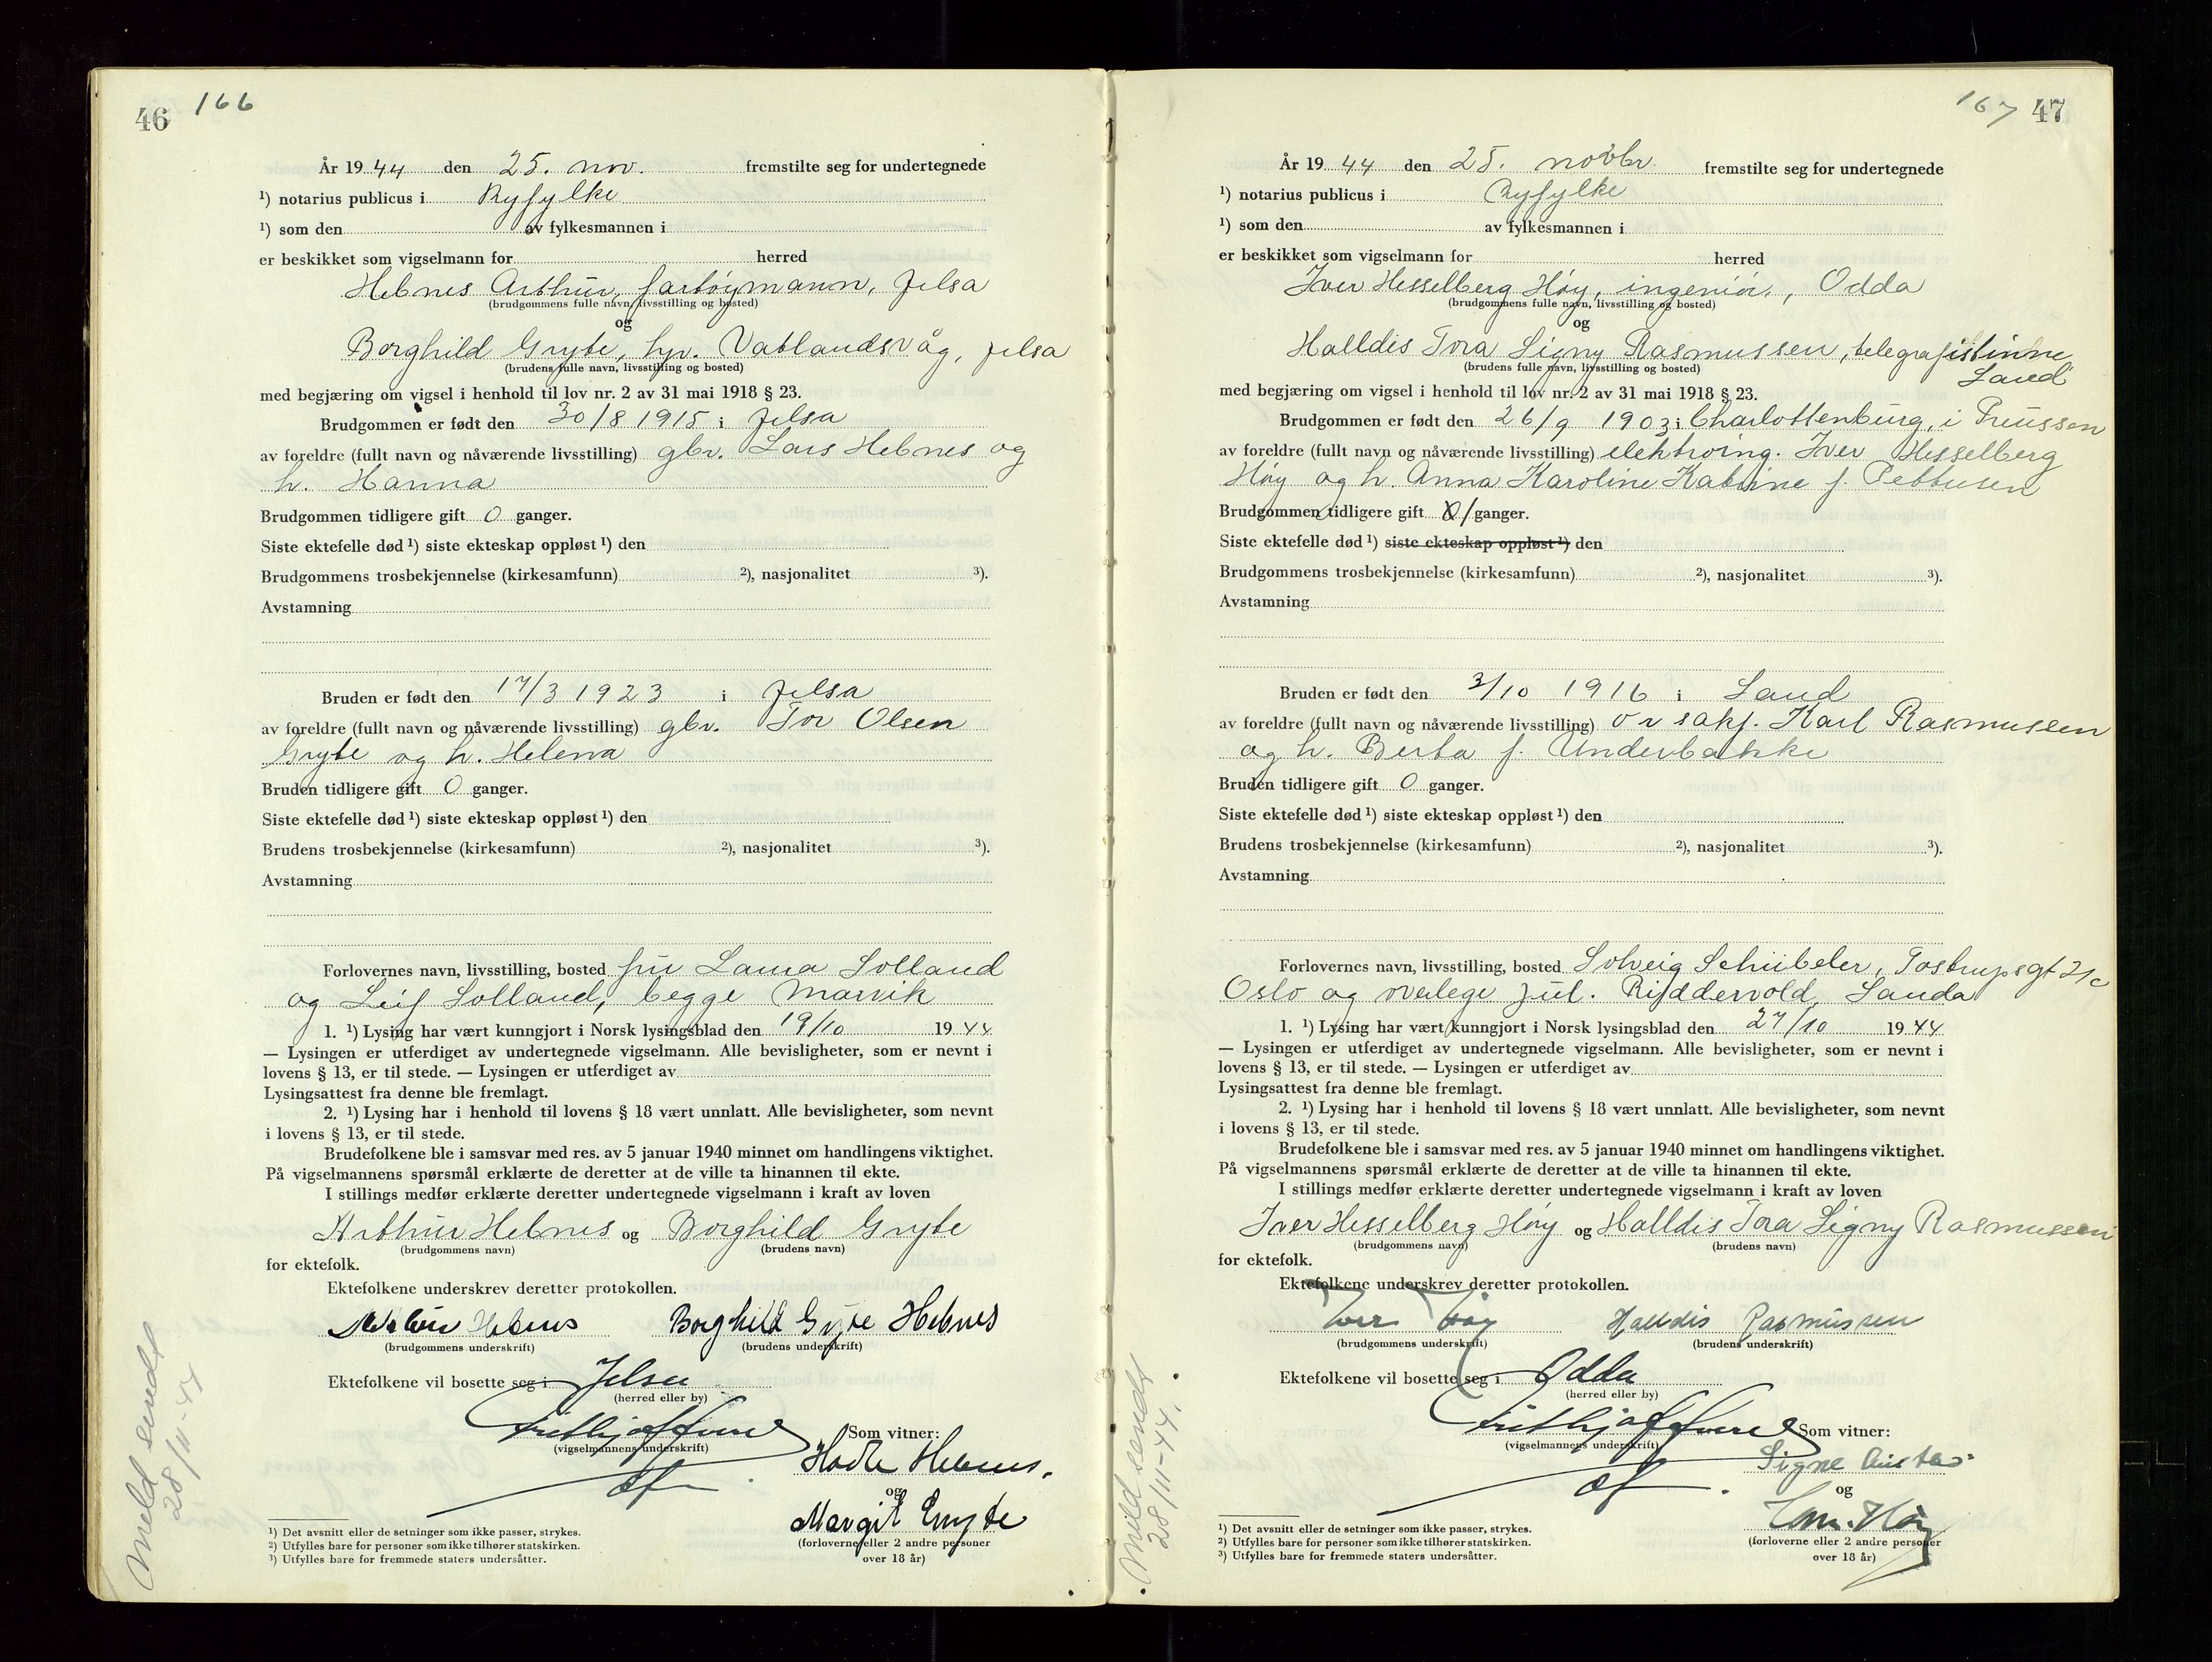 46 166
År 1944 den 25. nov. fremstilte seg for undertegnede
¹) notarius publicus i Ryfylke
¹) som den av fylkesmannen i
er beskikket som vigselmann for herred
Hebnes Arthur, fartøymann, Jelsa
(brudgommens fulle navn, livsstilling og bosted)
og
Borghild Gryte, hp. Vatlandsvåg, Jelsa
(brudens fulle navn, livsstilling og bosted)
med begjæring om vigsel i henhold til lov nr. 2 av 31 mai 1918 § 23.
Brudgommen er født den 30/8 1915 i Jelsa
av foreldre (fullt navn og nåværende livsstilling) gbr. Lars Hebnes og
h. Hanna
Brudgommen tidligere gift 0 ganger.
Siste ektefelle død ¹) siste ekteskap oppløst ¹) den
Brudgommens trosbekjennelse (kirkesamfunn) ²), nasjonalitet ³).
Avstamning
Bruden er født den 17/3 1923 i Jelsa
av foreldre (fullt navn og nåværende livsstilling) gbr. Tor Olsen
Gryte og h. Helena
Bruden tidligere gift 0 ganger.
Siste ektefelle død ¹) siste ekteskap oppløst ¹) den
Brudens trosbekjennelse (kirkesamfunn) ²), nasjonalitet ³).
Avstamning
Forlovernes navn, livsstilling, bosted fru Laura Solland
og Leif Solland, begge Marvik
1. ¹) Lysing har vært kunngjort i Norsk lysingsblad den 19/10 1944
— Lysingen er utferdiget av undertegnede vigselmann. Alle bevisligheter, som er nevnt i
lovens § 13, er til stede. — Lysingen er utferdiget av
Lysingsattest fra denne ble fremlagt.
2. ¹) Lysing har i henhold til lovens § 18 vært unnlatt. Alle bevisligheter, som nevnt
i lovens § 13, er til stede.
Brudefolkene ble i samsvar med res. av 5 januar 1940 minnet om handlingens viktighet.
På vigselmannens spørsmål erklærte de deretter at de ville ta hinannen til ekte.
I stillings medfør erklærte deretter undertegnede vigselmann i kraft av loven
Arthur Hebnes og Borghild Gryte
(brudgommens navn) (brudens navn)
for ektefolk.
Ektefolkene underskrev deretter protokollen.
Arthur Hebnes Borghild Gryte Hebnes
(brudgommens underskrift) (brudens underskrift)
Ektefolkene vil bosette seg i Jelsa
(herred eller by)
(vigselmannens underskrift)
Som vitner:
Hadle Hebnes.
og
Margit Gryte
(forloverne eller 2 andre personer
over 18 år)
¹) Det avsnitt eller de setninger som ikke passer, strykes.
²) Utfylles bare for personer som ikke tilhører statskirken.
³) Utfylles bare for fremmede staters undersåtter.
Meld sendt
28/11-44
167 47
År 1944 den 25. novbr. fremstilte seg for undertegnede
¹) notarius publicus i Ryfylke
¹) som den av fylkesmannen i
er beskikket som vigselmann for herred
Iver Hesselberg Høy, ingeniør, Odda
(brudgommens fulle navn, livsstilling og bosted)
og
Halldis Tora Signy Rasmussen, telegrafistinne
Saud
(brudens fulle navn, livsstilling og bosted)
med begjæring om vigsel i henhold til lov nr. 2 av 31 mai 1918 § 23.
Brudgommen er født den 26/9 1903 i Charlottenburg, i Preussen
av foreldre (fullt navn og nåværende livsstilling) elektroing. Iver Hesselberg
Høy og h. Anna Karoline Katrine f. Pettersen
Brudgommen tidligere gift 1 ganger.
Siste ektefelle død ¹) siste ekteskap oppløst ¹) den
Brudgommens trosbekjennelse (kirkesamfunn) ²), nasjonalitet ³).
Avstamning
Bruden er født den 3/10 1916 i Saud
av foreldre (fullt navn og nåværende livsstilling) o r sakf. Karl Rasmussen
og h. Berta f. Underbakke
Bruden tidligere gift 0 ganger.
Siste ektefelle død ¹) siste ekteskap oppløst ¹) den
Brudens trosbekjennelse (kirkesamfunn) ²), nasjonalitet ³).
Avstamning
Forlovernes navn, livsstilling, bosted Solveig Schübeler, Tostrupsgt 21c
Oslo og overlege Jul. Riddervold, Sauda
1. ¹) Lysing har vært kunngjort i Norsk lysingsblad den 27/10 1944
— Lysingen er utferdiget av undertegnede vigselmann. Alle bevisligheter, som er nevnt i
lovens § 13, er til stede. — Lysingen er utferdiget av
Lysingsattest fra denne ble fremlagt.
2. ¹) Lysing har i henhold til lovens § 18 vært unnlatt. Alle bevisligheter, som nevnt
i lovens § 13, er til stede.
Brudefolkene ble i samsvar med res. av 5 januar 1940 minnet om handlingens viktighet.
På vigselmannens spørsmål erklærte de deretter at de ville ta hinannen til ekte.
I stillings medfør erklærte deretter undertegnede vigselmann i kraft av loven
Iver Hesselberg Høy og Halldis Tora Signy Rasmussen
(brudgommens navn) (brudens navn)
for ektefolk.
Ektefolkene underskrev deretter protokollen.
Iver Høy Halldis Rasmussen
(brudgommens underskrift) (brudens underskrift)
Ektefolkene vil bosette seg i Odda
(herred eller by)
(vigselmannens underskrift)
Som vitner:
Signe
og
Høy
(forloverne eller 2 andre personer
over 18 år)
¹) Det avsnitt eller de setninger som ikke passer, strykes.
²) Utfylles bare for personer som ikke tilhører statskirken.
³) Utfylles bare for fremmede staters undersåtter.
Meld sendt
28/11-44.